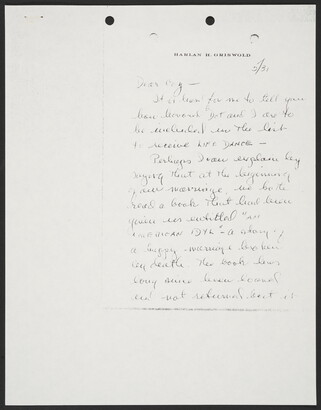 HARLAN H. GRISWOLD
5/31
Dear
It is hard for me to tell you
how honored Dot and I are to
be included in the list
to receive LIKE DANCE –
Perhaps I can explain by
saying that at the beginning
of our marriage, we both
read a book that had been
given us entitled "AN
AMERICAN IDYL" – a story of
a happy marriage broken
by death. The book has
long since been loaned
and not returned but it